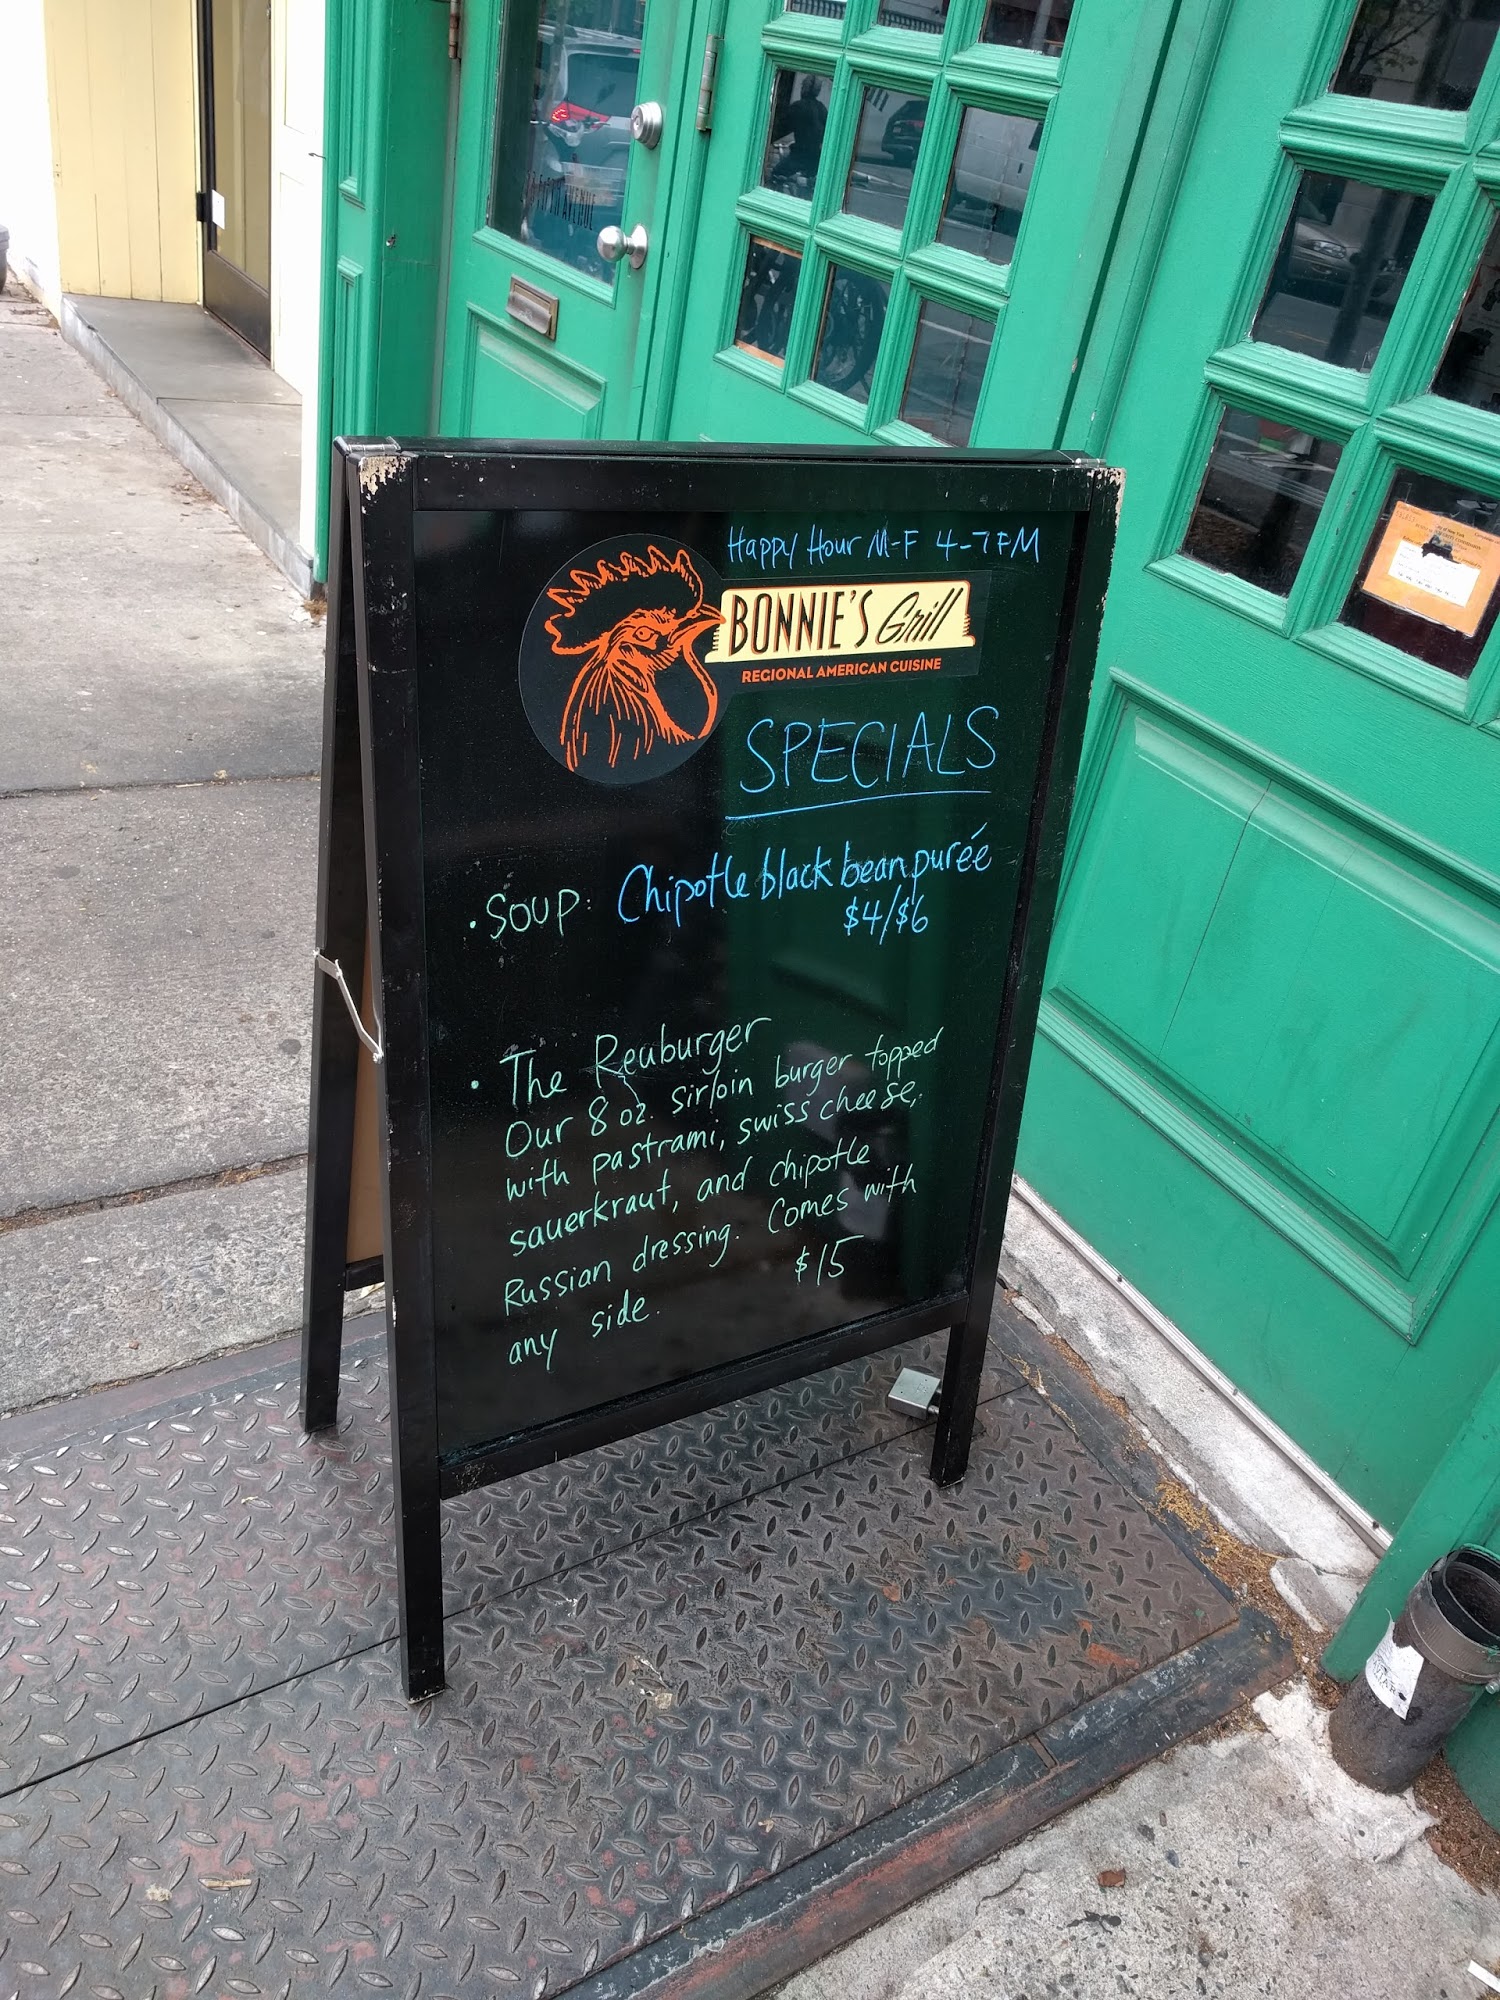 Happy Hour M-F 4-7PM
BONNIE'S Grill
REGIONAL AMERICAN CUISINE
SPECIALS
• SOUP: Chipotle black bean purée
$4/$6
• The Reuburger
Our 8 oz. sirloin burger topped
with pastrami, swiss cheese,
sauerkraut, and chipotle
Russian dressing. Comes with
any side. $15
AVENUE